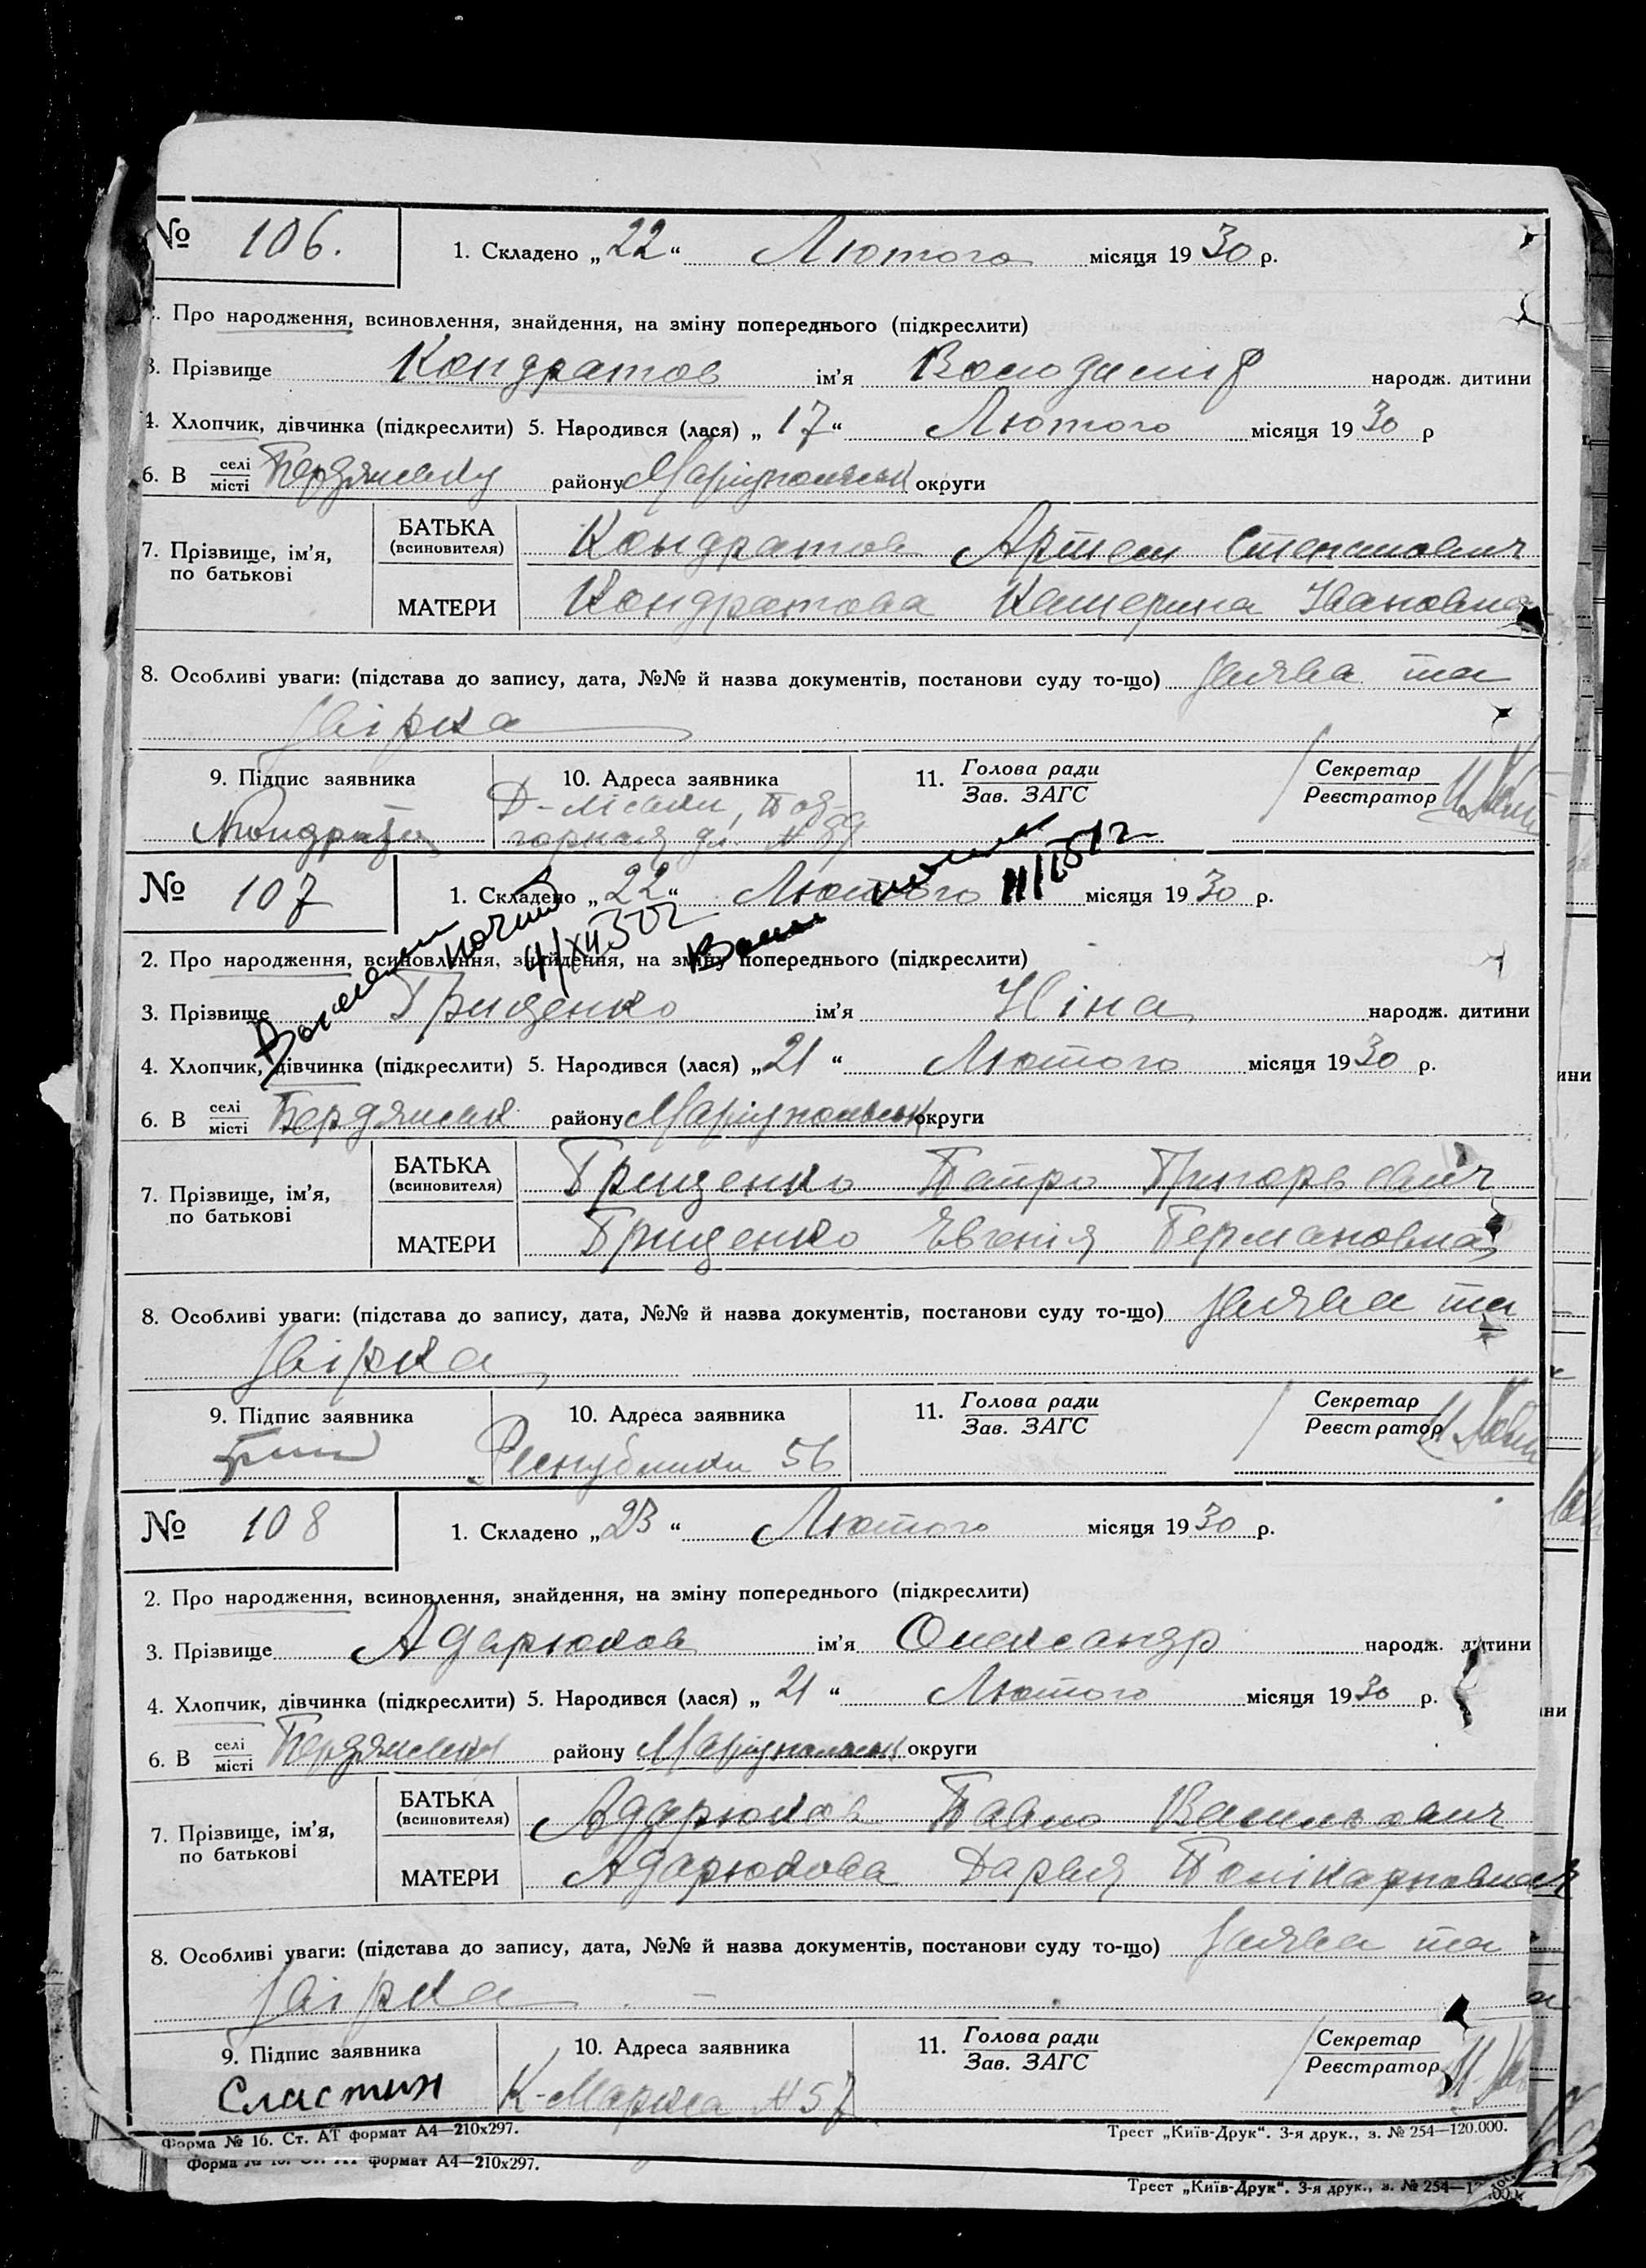 № 106. 1. Складено „22“ Лютого місяця 1930 р.
Про народження, всиновлення, знайдення, на зміну попереднього (підкреслити)
3. Прізвище Кондратов ім’я Володимир народж. дитини
4. Хлопчик, дівчинка (підкреслити) 5. Народився (лася) „17“ Лютого місяця 1930 р
6. В селі місті Бердянську району Маріупольськ округи
7. Прізвище, ім’я, по батькові
БАТЬКА (всиновителя) Кондратов Артем
МАТЕРИ Кондратова Катерина Івановна
8. Особливі уваги: (підстава до запису, дата, №№ й назва документів, постанови суду то-що) Заява та
звірка
9. Підпис заявника 10. Адреса заявника 11. Голова ради Зав. ЗАГС Секретар Реєстратор
Д-Лісами, Под-
горная № 89
№ 107 1. Складено „22“ Лютого місяця 1930 р.
2. Про народження, всиновлення, знайдення, на зміну попереднього (підкреслити)
3. Прізвище Грищенко ім’я Ніна народж. дитини
4. Хлопчик, дівчинка (підкреслити) 5. Народився (лася) „21“ Лютого місяця 1930 р.
6. В селі місті Бердянськ району Маріупольськ округи
7. Прізвище, ім’я, по батькові
БАТЬКА (всиновителя) Грищенко Петро Григорьевич
МАТЕРИ Грищенко Евгенія Германовна
8. Особливі уваги: (підстава до запису, дата, №№ й назва документів, постанови суду то-що) Заява та
звірка
9. Підпис заявника 10. Адреса заявника 11. Голова ради Зав. ЗАГС Секретар Реєстратор
Республики 56
№ 108 1. Складено „23“ Лютого місяця 1930 р.
2. Про народження, всиновлення, знайдення, на зміну попереднього (підкреслити)
3. Прізвище Адарюков ім’я Олександр народж. дитини
4. Хлопчик, дівчинка (підкреслити) 5. Народився (лася) „21“ Лютого місяця 1930 р.
6. В селі місті Бердянську району Маріупольськ округи
7. Прізвище, ім’я, по батькові
БАТЬКА (всиновителя) Адарюков Павло Васильович
МАТЕРИ Адарюкова Дарья Полікарповна
8. Особливі уваги: (підстава до запису, дата, №№ й назва документів, постанови суду то-що) Заява та
звірка
9. Підпис заявника 10. Адреса заявника 11. Голова ради Зав. ЗАГС Секретар Реєстратор
Сластин К-Маркса № 57
Форма № 16. Ст. АТ формат А4—210х297. Трест „Київ-Друк“. 3-я друк., з. № 254—120.000.
формат А4—210х297.
Трест „Київ-Друк“. 3-я друк., з. № 254—